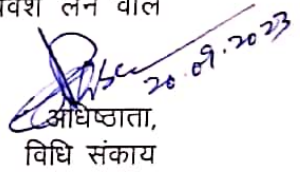 प्रवेश लेने वाले
20.09.2023
अधिष्ठाता,
विधि संकाय